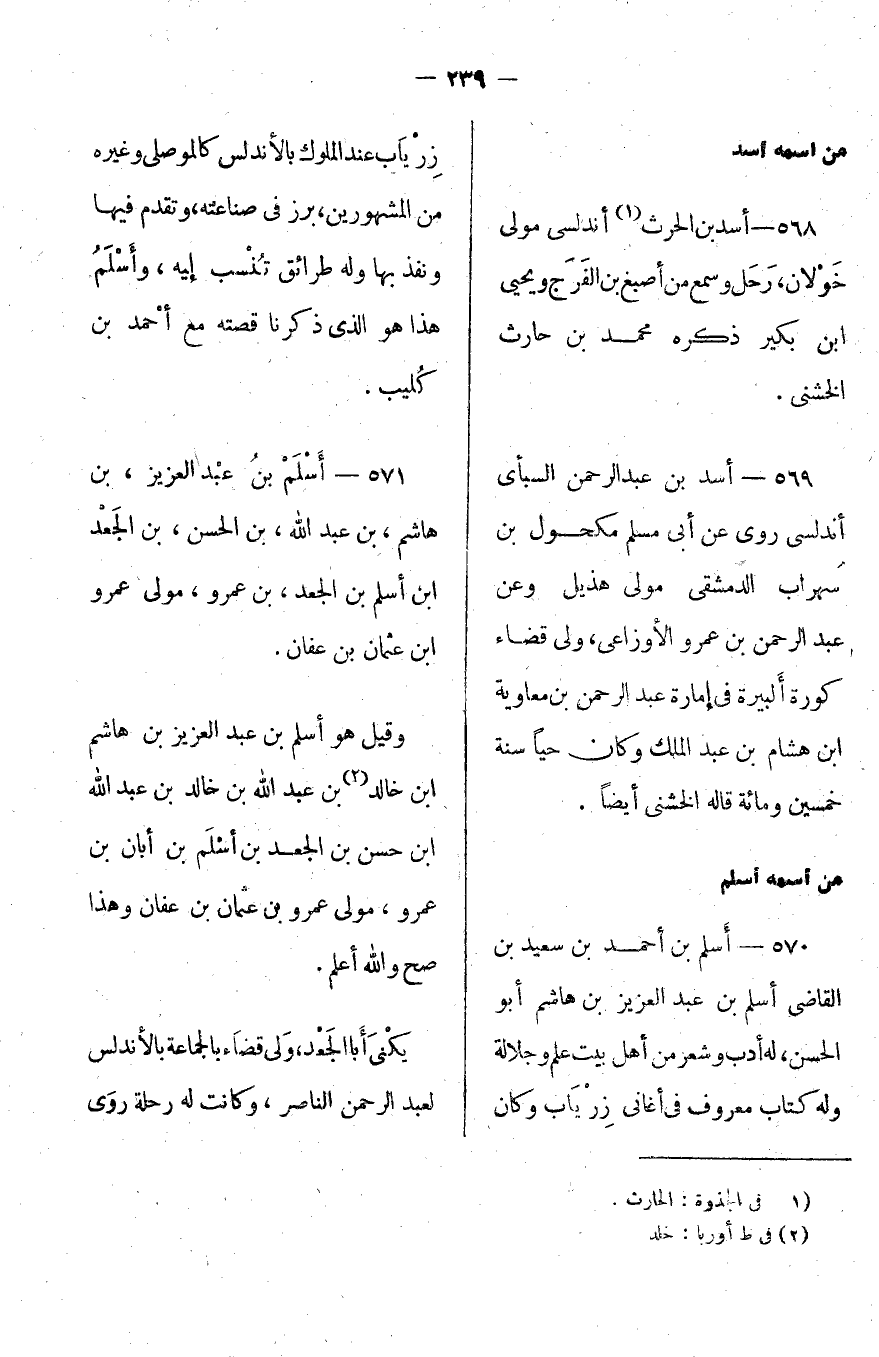 — ٢٣٩ —
من اسمه أسد
٥٦٨ — أسد بن الحرث (١) أندلسى مولى
خَوْلان، رَحَل وسمع من أصبغ بن الفَرَج ويحيى
ابن بكير ذكره محمد بن حارث
الخشنى .
٥٦٩ — أسد بن عبد الرحمن السبأى
أندلسى روى عن أبى مسلم مكحول بن
سُهراب الدمشقى مولى هذيل وعن
عبد الرحمن بن عمرو الأوزاعى، ولى قضاء
كورة ألبيرة فى إمارة عبد الرحمن بن معاوية
ابن هشام بن عبد الملك وكان حياً سنة
خمسين ومائة قاله الخشنى أيضاً .
من أسمه أسلم
٥٧٠ — أَسلم بن أحمد بن سعيد بن
القاضى أسلم بن عبد العزيز بن هاشم أبو
الحسن، له أدب وشعر من أهل بيت علم وجلالة
وله كتاب معروف فى أغانى زِرْيَاب وكان
زِرْيَاب عند الملوك بالأندلس كالموصلى وغيره
من المشهورين، برز فى صناعته، وتقدم فيها
ونفذ بها وله طرائق تُنْسب إليه ، وأَسْلَمُ
هذا هو الذى ذكرنا قصته مع أحْمد بن
كُليب .
٥٧١ — أَسْلَمْ بنُ عبْد العزيز ، بن
هاشم ، بن عبد الله ، بن الحسن ، بن الجَعْد
ابن أسلم بن الجعد ، بن عمرو ، مولى عمرو
ابن عثمان بن عفان .
وقيل هو أسلم بن عبد العزيز بن هاشم
ابن خالد (٢) بن عبد الله بن خالد بن عبد الله
ابن حسن بن الجعد بن أسْلَم بن أبان بن
عمرو ، مولى عمرو بن عثمان بن عفان وهذا
صح والله أعلم .
يكنْى أَبا الجَعْد، وَلى قضَاء بالجماعة بالأندلس
لعبد الرحمن الناصر ، وكانت له رحلة روَى
(١ فى الجذوة : الحارث .
(٢) فى ط أوربا : خلد